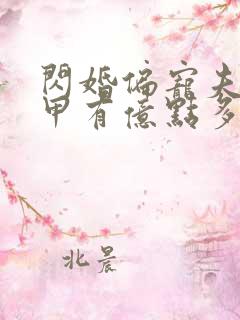 閃婚偏寵夫
甲有億點多
北晨